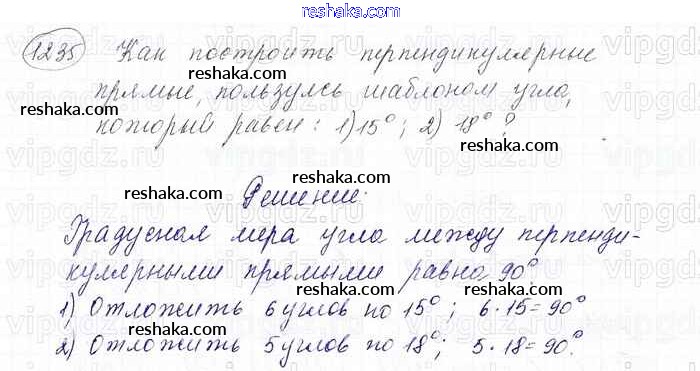 reshaka.com
1235 Как построить перпендикулярные
reshaka.com reshaka.com
прямые, пользуясь шаблоном угла,
который равен: 1) 15°; 2) 18°?
reshaka.com
Решение:
reshaka.com reshaka.com
Градусная мера угла между перпенди-
кулярными прямыми равна 90°.
reshaka.com reshaka.com
1) Отложить 6 углов по 15°; 6·15=90°
reshaka.com
2) Отложить 5 углов по 18°; 5·18=90°.
reshaka.com
vipgdz.ru